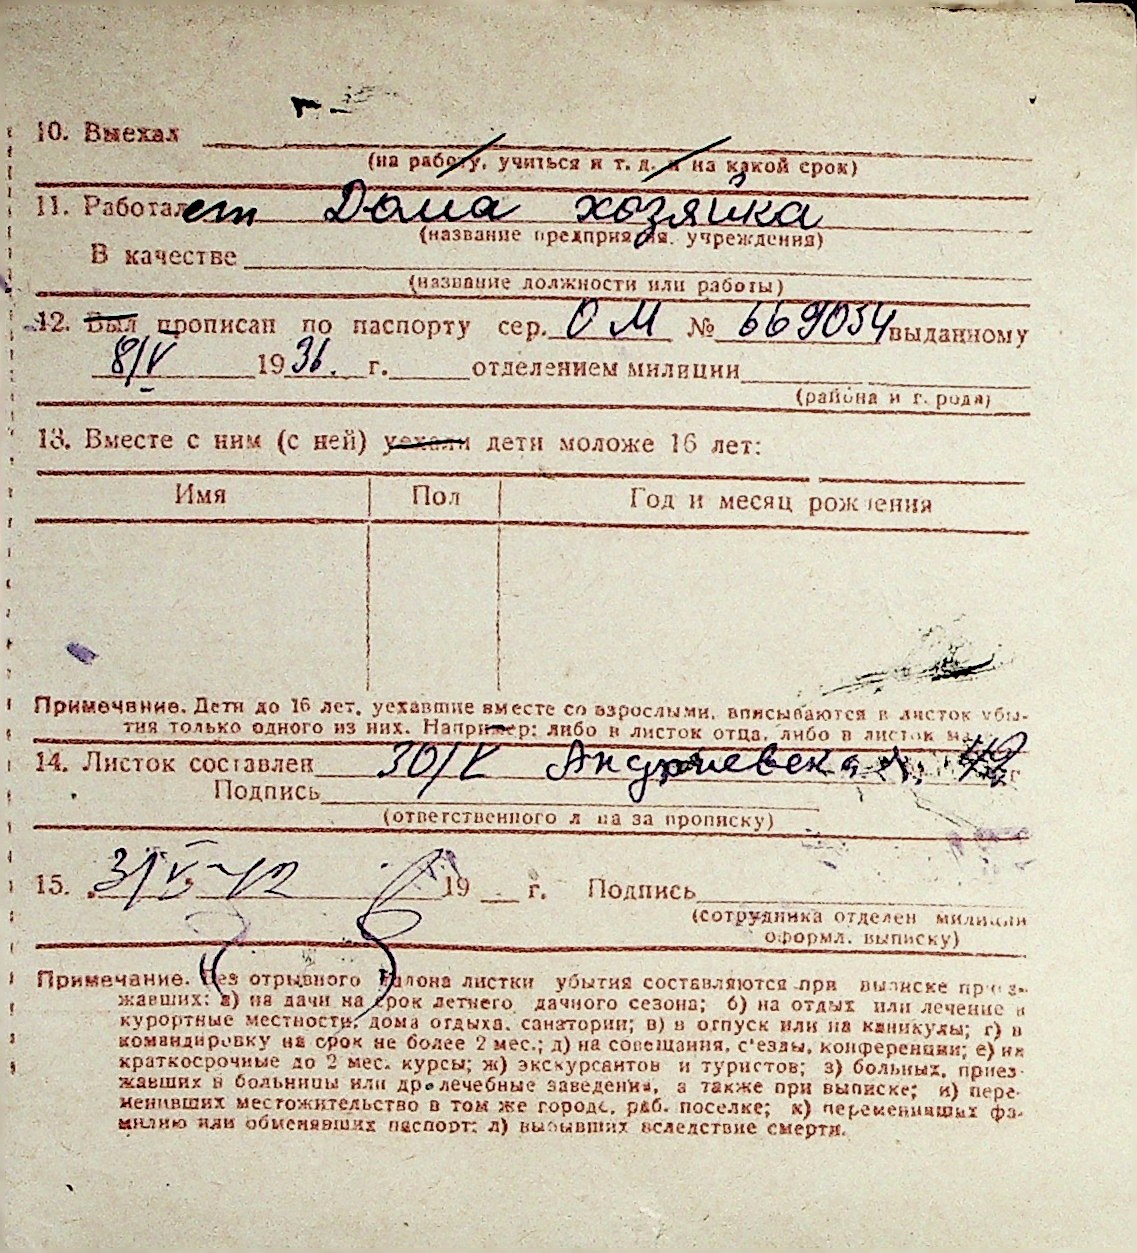 10. Выехал
(на работу, учиться и т. д. и на какой срок)
11. Работает Дома хозяйка
(название предприятия, учреждения)
В качестве
(название должности или работы)
12. Был прописан по паспорту сер. ОМ № 669054 выданному
8/V 1936. г. отделением милиции
(района и города)
13. Вместе с ним (с ней) уехали дети моложе 16 лет:
Имя Пол Год и месяц рождения
Примечание. Дети до 16 лет, уехавшие вместе со взрослыми, вписываются в листок убы-
тия только одного из них. Например: либо в листок отца, либо в листок
14. Листок составлен 30/V г.
Подпись
(ответственного лица за прописку)
15. 3/V-42 19 г. Подпись
(сотрудника отделен. милиции
оформл. выписку)
Примечание. Без отрывного талона листки убытия составляются при выписке прое-
жавших: а) на дачи на срок летнего дачного сезона; б) на отдых или лечение в
курортные местности, дома отдыха, санатории; в) в отпуск или на каникулы; г) в
командировку на срок не более 2 мес.; д) на совещания, с'езды, конференции; е) на
краткосрочные до 2 мес. курсы; ж) экскурсантов и туристов; з) больных, приез-
жавших в больницы или др. лечебные заведения, а также при выписке; и) пере-
менивших местожительство в том же городе, раб. поселке; к) переменивших фа-
милию или обменявших паспорт; л) выбывших вследствие смерти.